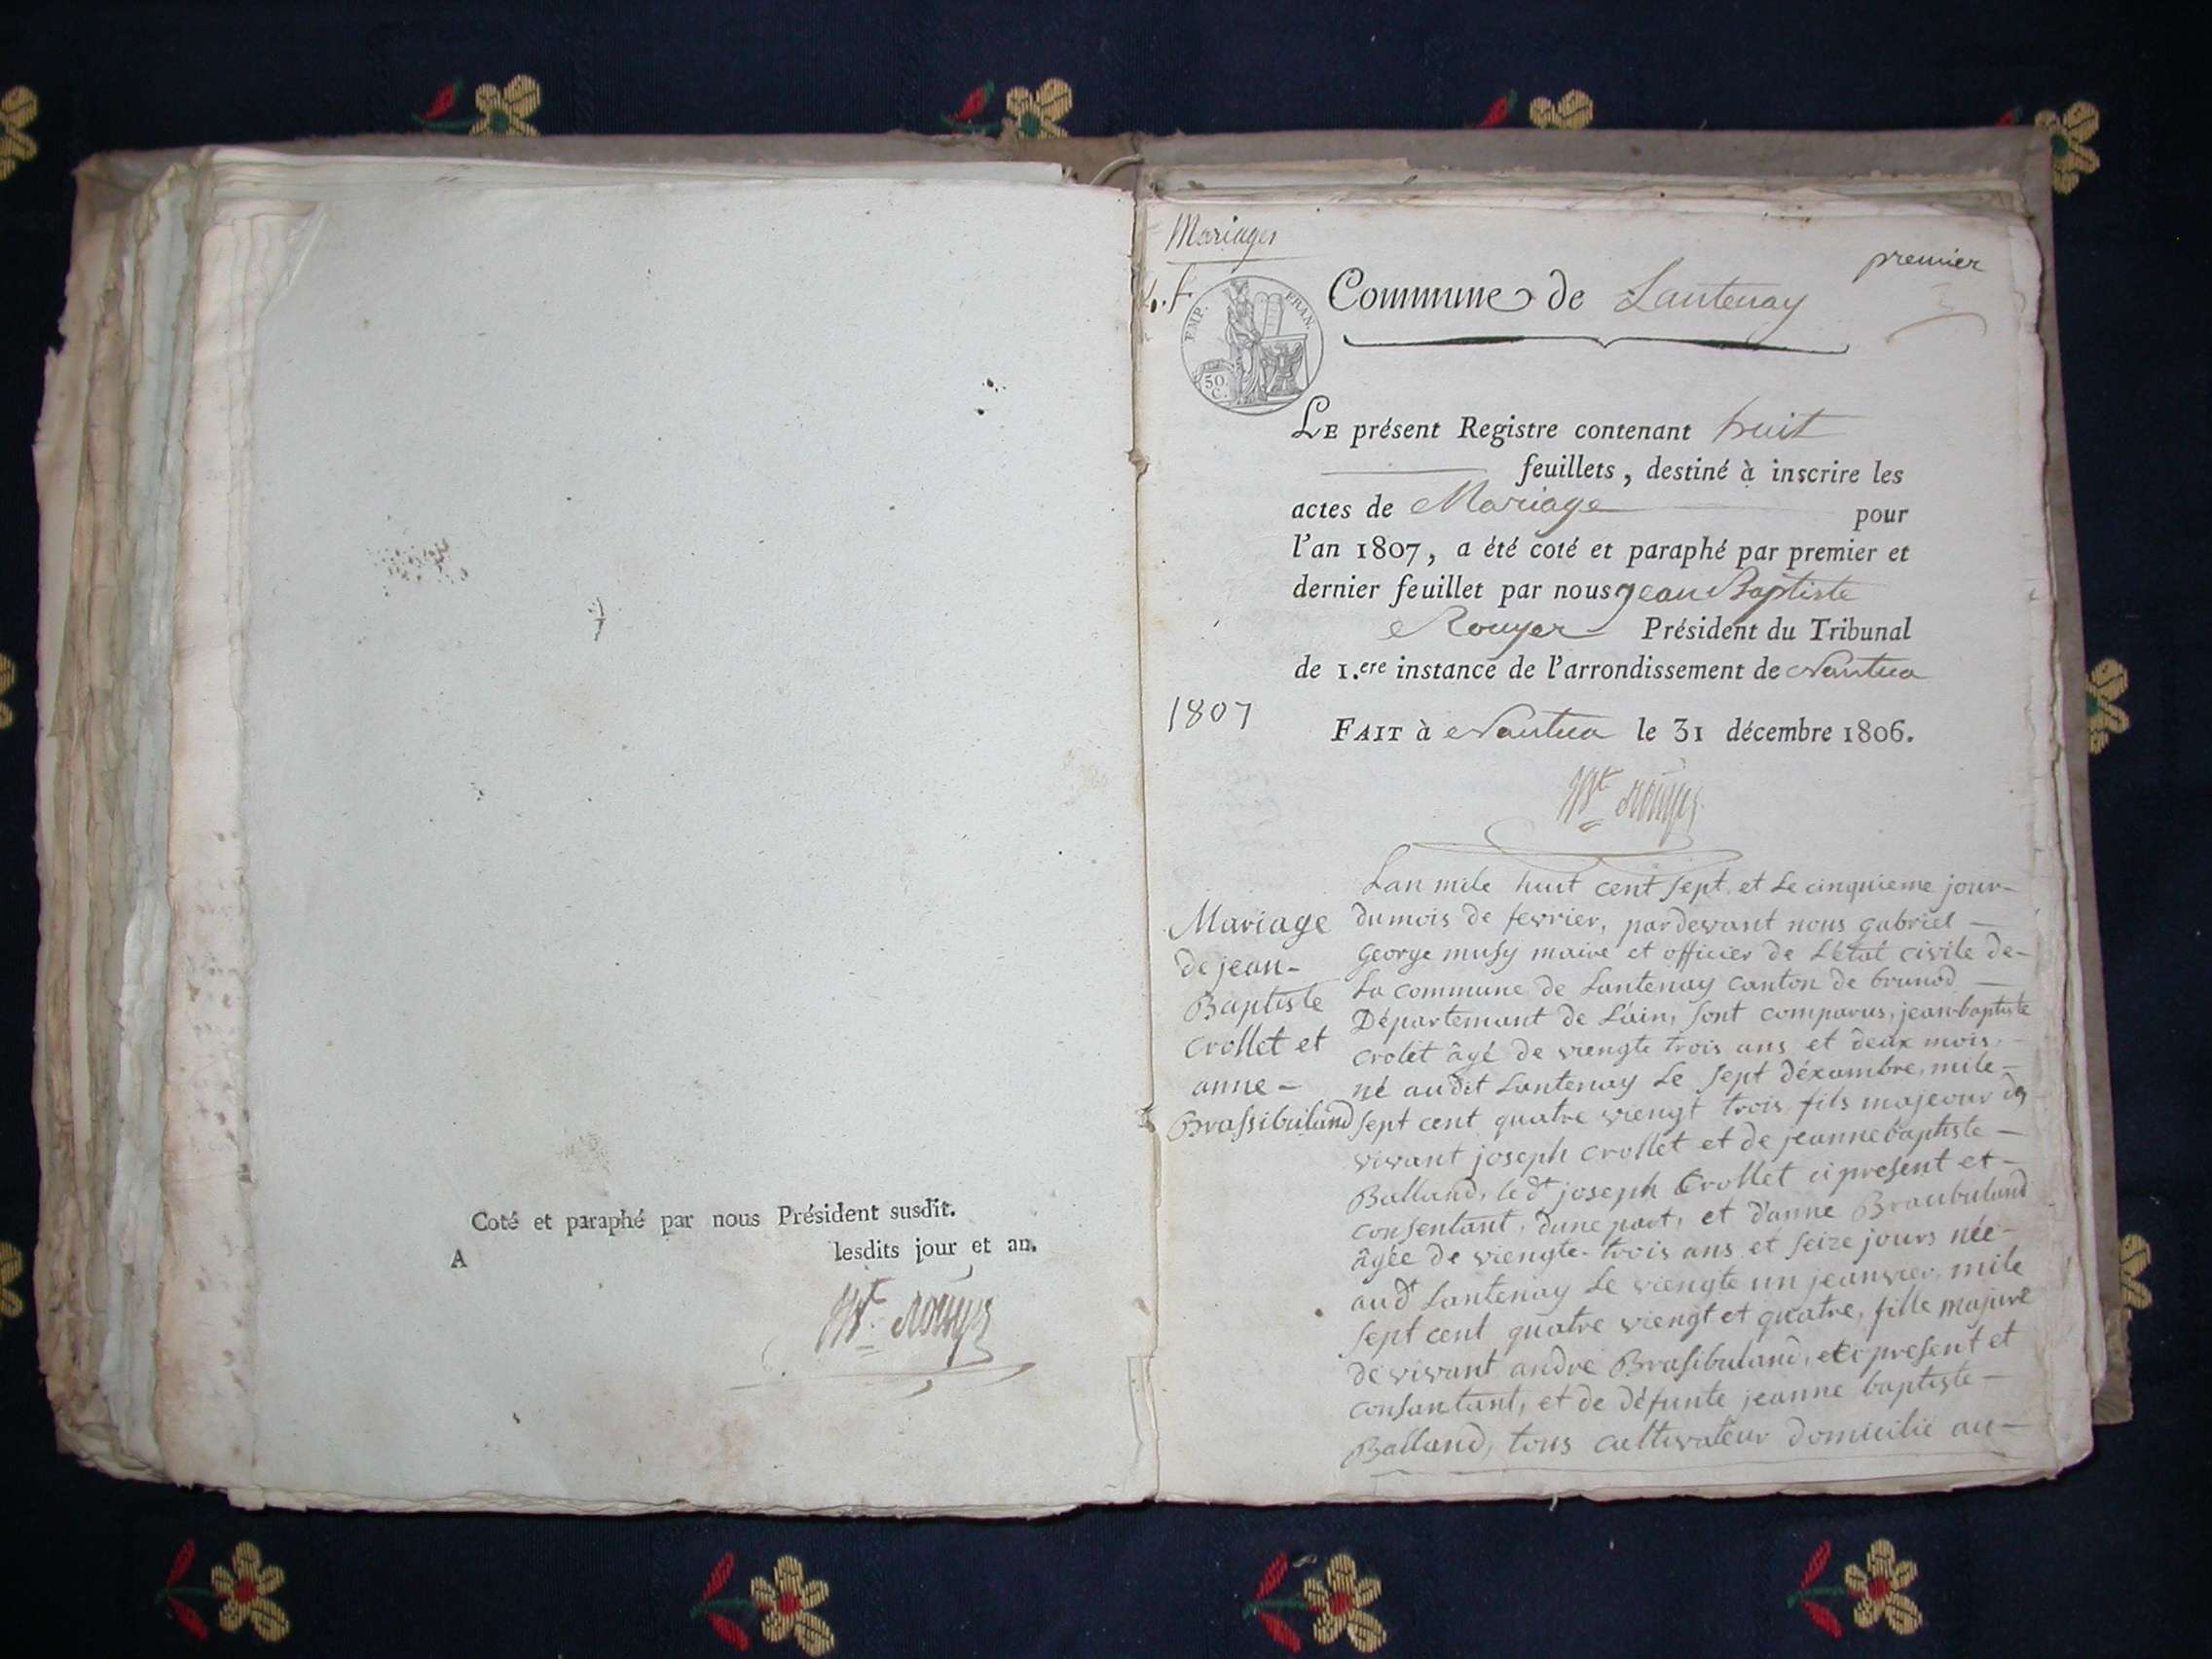 Coté et paraphé par nous Président susdit.
A lesdits jour et an.
Mariages
premier
EMP. FRAN.
50 C.
Commune de Lantenay
LE présent Registre contenant huit
feuillets, destiné à inscrire les
actes de Mariage pour
l'an 1807, a été coté et paraphé par premier et
dernier feuillet par nous jean Baptiste
Rouyer Président du Tribunal
de 1.ere instance de l'arrondissement de Nantua
1807
FAIT à Nantua le 31 décembre 1806.
Mariage
de jean-
Baptiste
Crollet et
anne -
Brassibuland
Lan mile huit cent sept et Le cinquieme jour-
du mois de fevrier, pardevant nous gabriel -
george musy maire et officier de Létat civile de-
La commune de Lantenay canton de brunod -
Départemant de Láin, sont comparus, jean-baptiste
crolet âgé de viengte trois ans et deux mois,
né audit Lantenay Le sept déxambre, mile-
sept cent quatre viengt trois fils majeour de
vivant joseph crollet et de jeanne baptiste -
Balland, ledt joseph Crollet ci present et -
consentant, dune part, et d'anne Braubuland
âgée de viengte-trois ans et seize jours née-
audt Lantenay Le viengte un jeanvier, mile
sept cent quatre viengt et quatre, fille majure
de vivant andre Brasibuland, ci present et
consantant, et de Défunte jeanne baptiste -
Balland, tous cultivateur domicilié au-